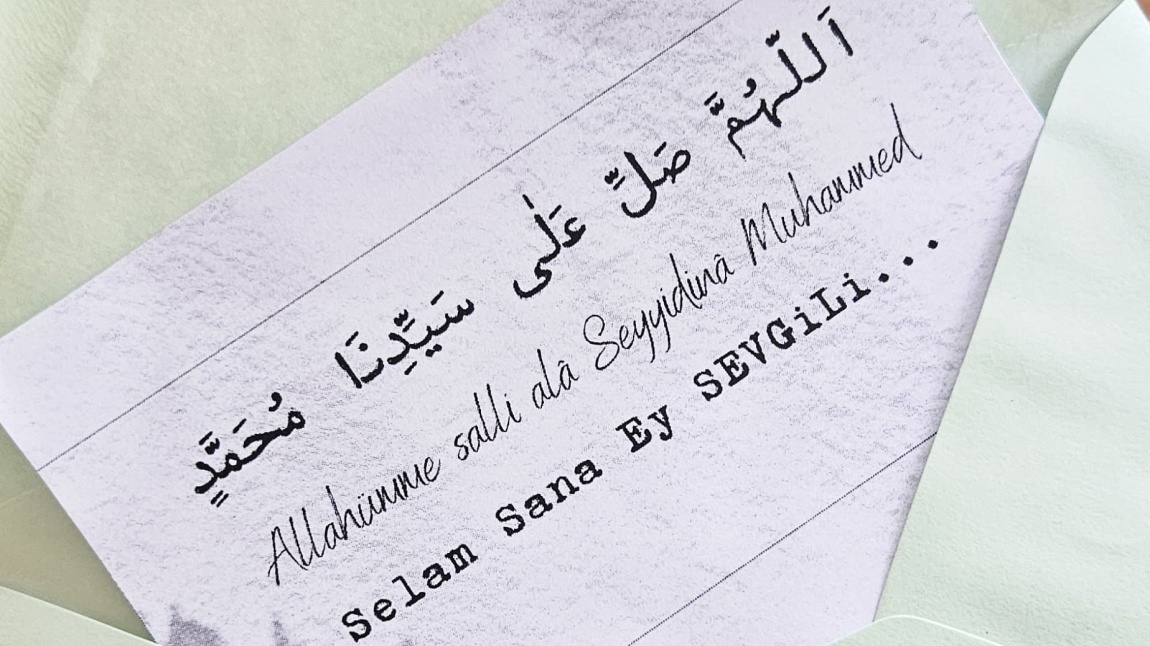 اَللّٰهُمَّ صَلِّ عَلٰى سَيِّدِنَا مُحَمَّدٍ
Allahümme salli alâ Seyyidinâ Muhammed
Selam Sana Ey SEVGiLi...